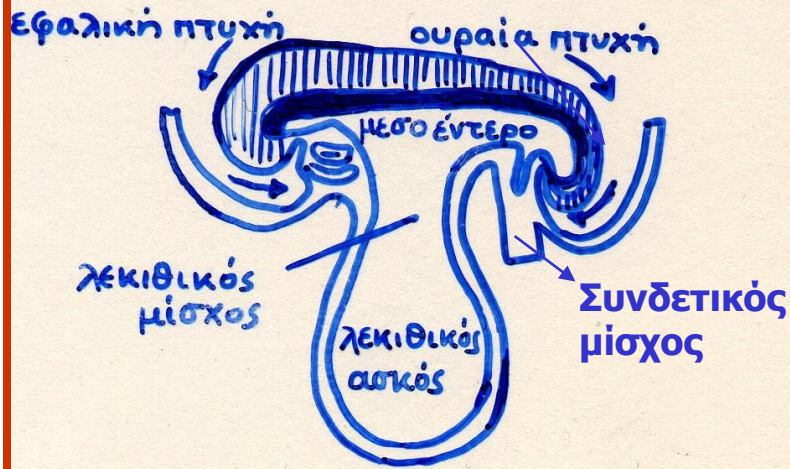 εφαλική πτυχή
ουραία πτυχή
μεσοέντερο
λεκιθικός
μίσχος
λεκιθικός
ασκός
Συνδετικός
μίσχος